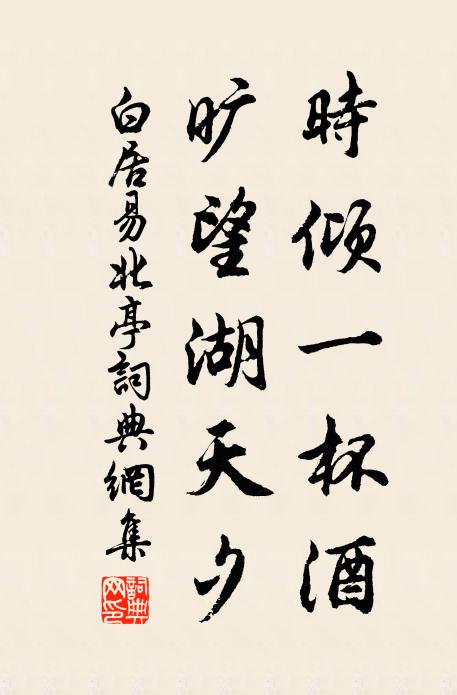 時傾一杯酒
旷望湖天夕
白居易北亭詞典網集
詞典網印